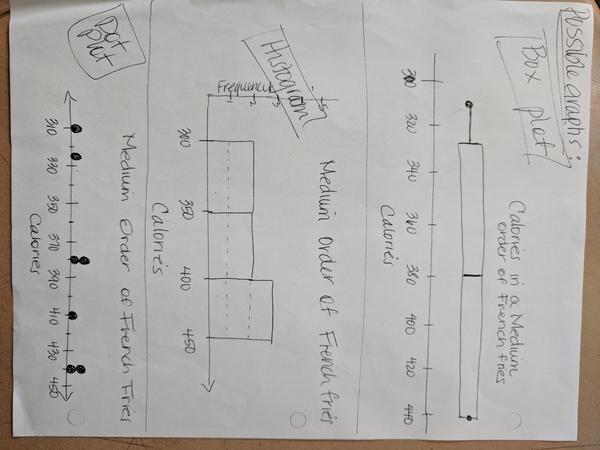 Possible graphs:
Box plot
Calories in a Medium
order of French fries
300 320 340 360 380 400 420 440
Calories
Histogram
Medium Order of French fries
Frequency
1
2
3
5
300 350 400 450
Calories
Dot
Plot
Medium Order of French Fries
310 330 350 370 390 410 430 450
Calories